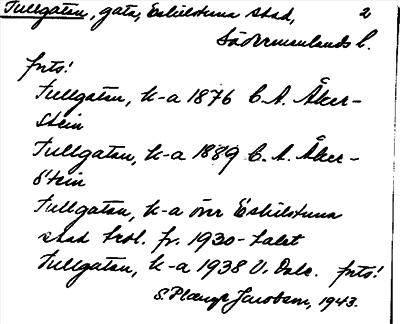 Tullgatan, gata, Eskilstuna stad, 2
Södermanlands l.
forts!
Tullgatan, k-a 1876 C. A. Åker-
stein
Tullgatan, k-a 1889 C. A. Åker-
stein
Tullgatan, k-a över Eskilstuna
stad trol. fr. 1930-talet
Tullgatan, k-a 1938 V. Dalc. forts!
S. Plange Jacobson, 1943.